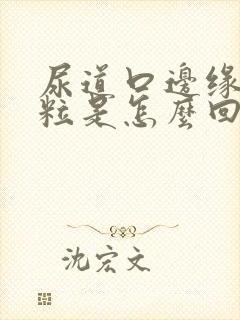 尿道口邊缘
粒是怎麼回
沈宏文